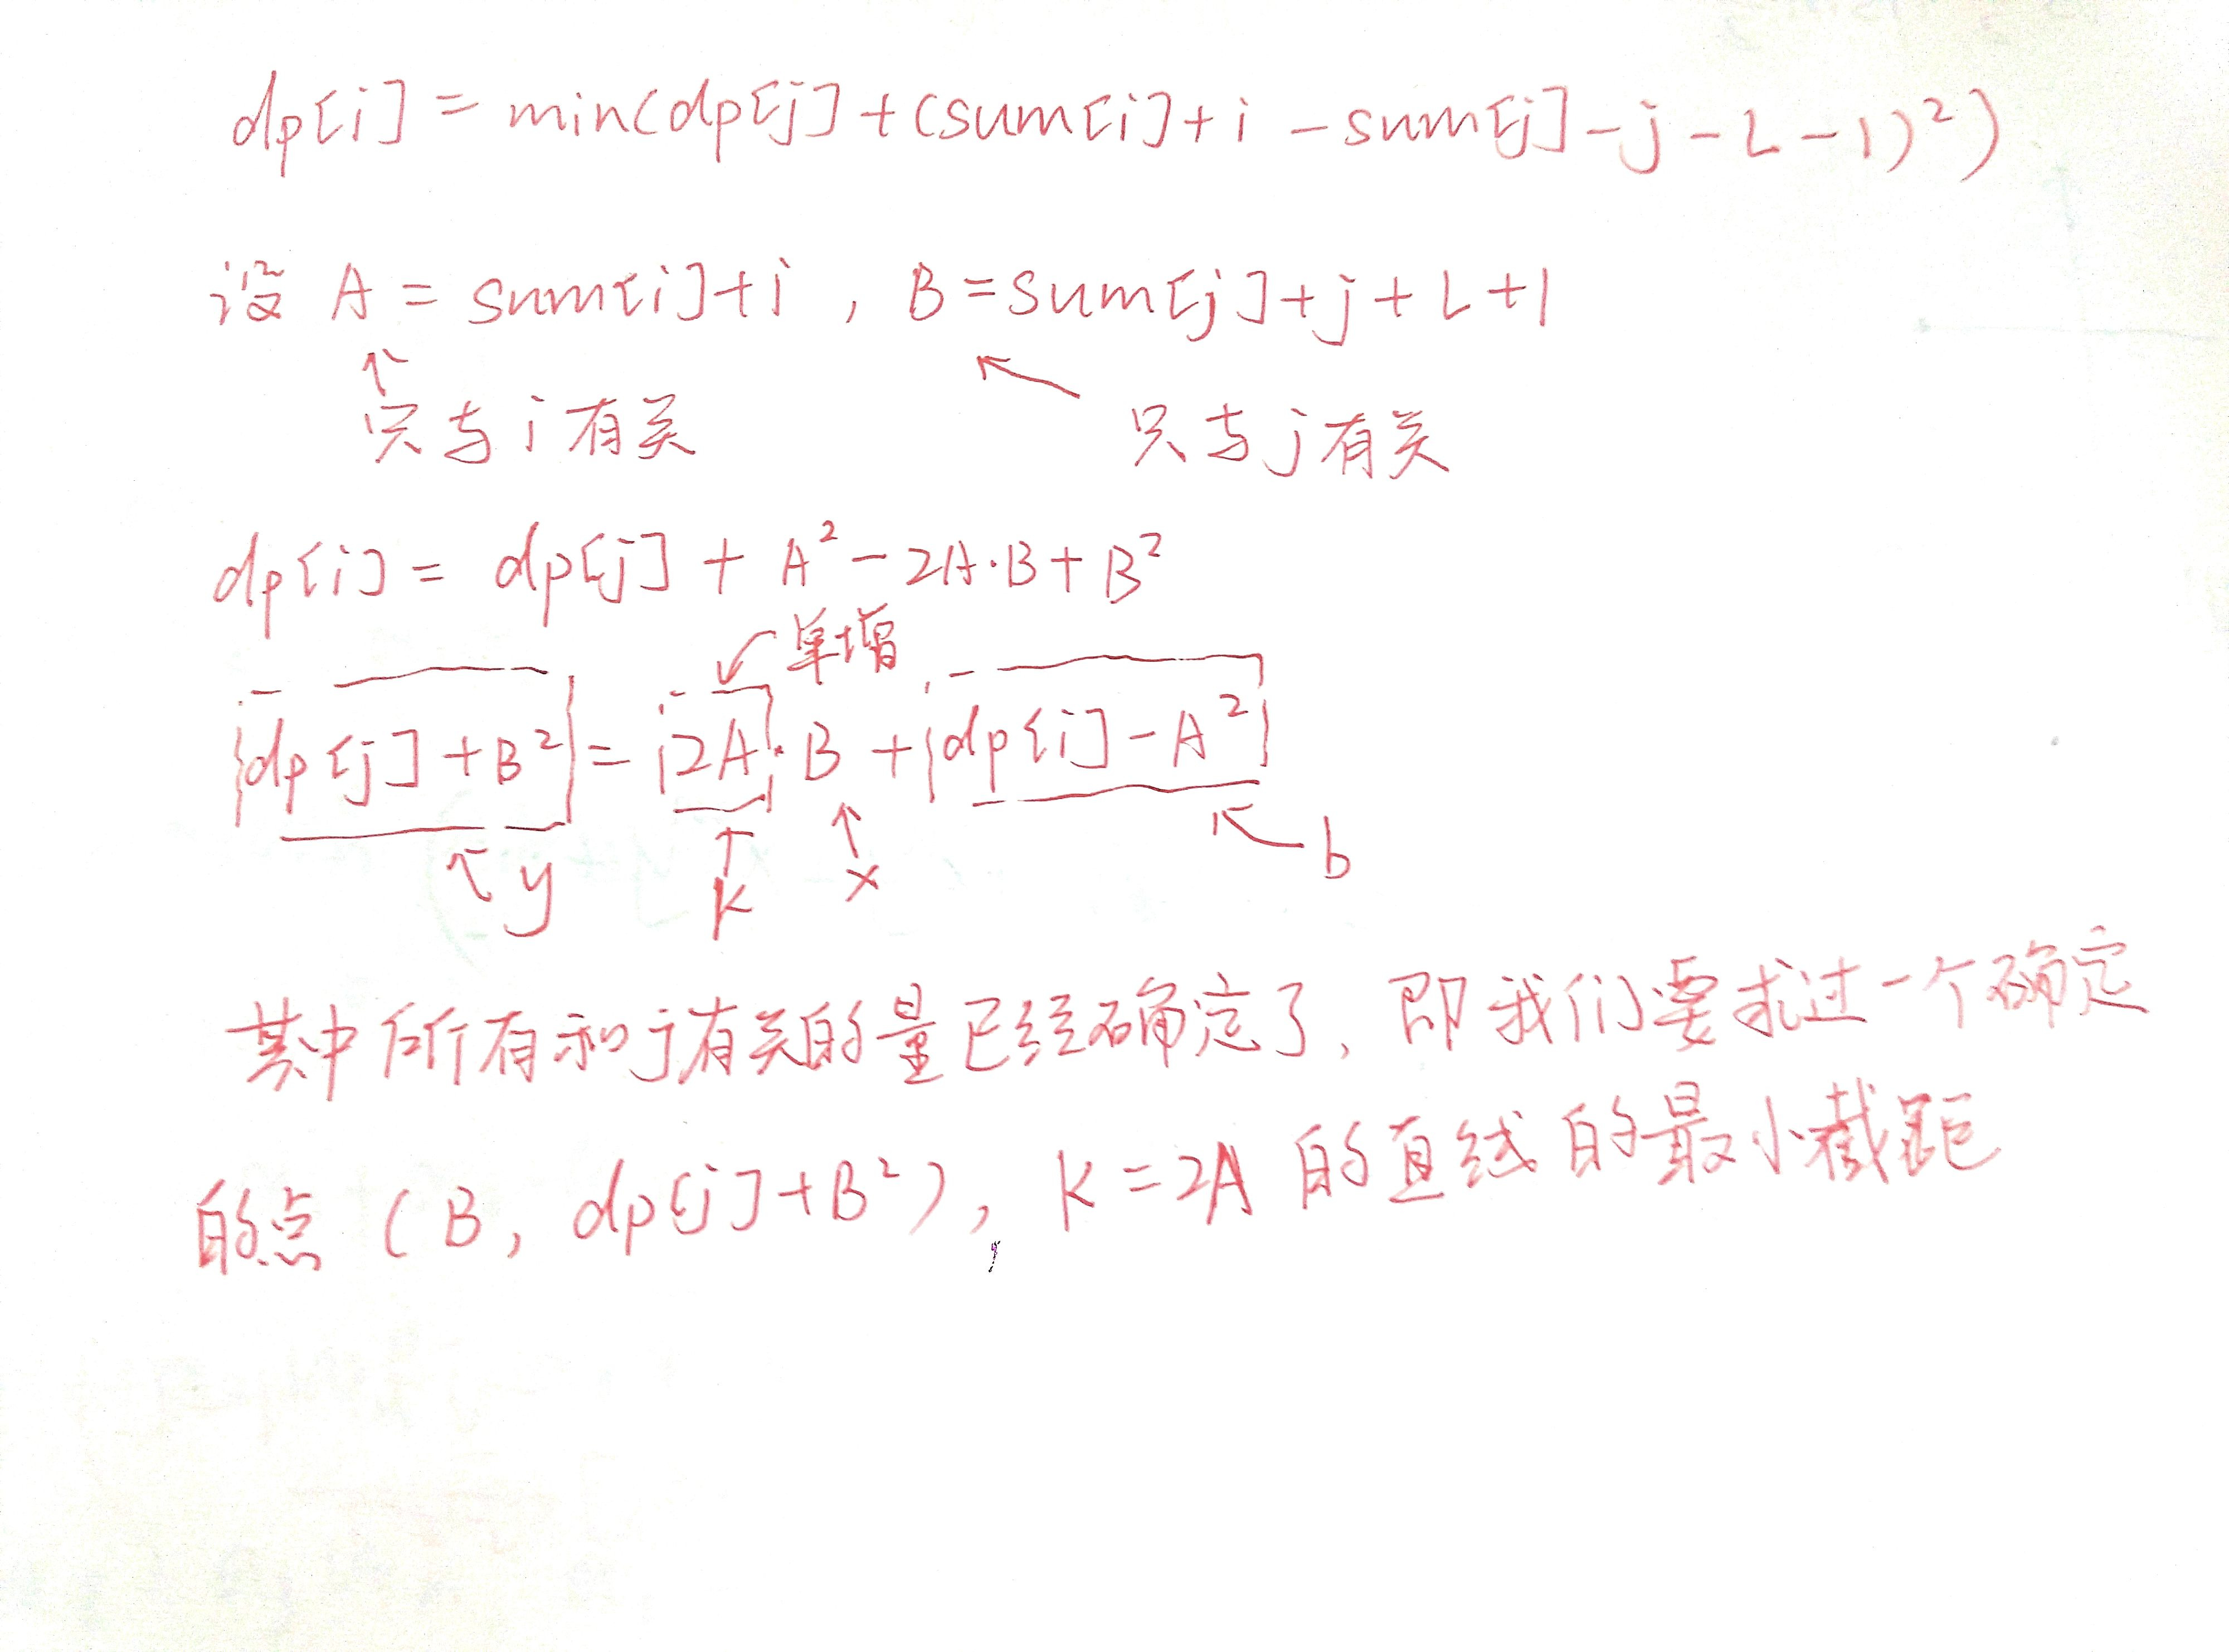 dp[i] = min(dp[j] + (sum[i] + i - sum[j] - j - L - 1)²)
设 A = sum[i] + i , B = sum[j] + j + L + 1
↑ ↖
只与 i 有关 只与 j 有关
dp[i] = dp[j] + A² - 2A·B + B²
↙ 单增
dp[j] + B² = 2A · B + dp[i] - A²
↑ y ↑ k ↑ x ↖ b
其中所有和 j 有关的量已经确定了, 即我们要求过一个确定
的点 ( B, dp[j] + B² ), k = 2A 的直线的最小截距